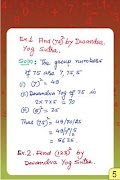 Ex.1. Find (75)² by Dwandva
Yog Sutra.
Soln: The group numbers
of 75 are 7, 75, 5
(i) (7)² = 49
(ii) Dwandva Yog of 75 is
2x7x5 = 70
(iii) 5² = 25
Thus (75)² = 49/70/25
= 49/70/25
= 5625.
Ex.2. Find (123)² by
Dwandva Yog Sutra.
5